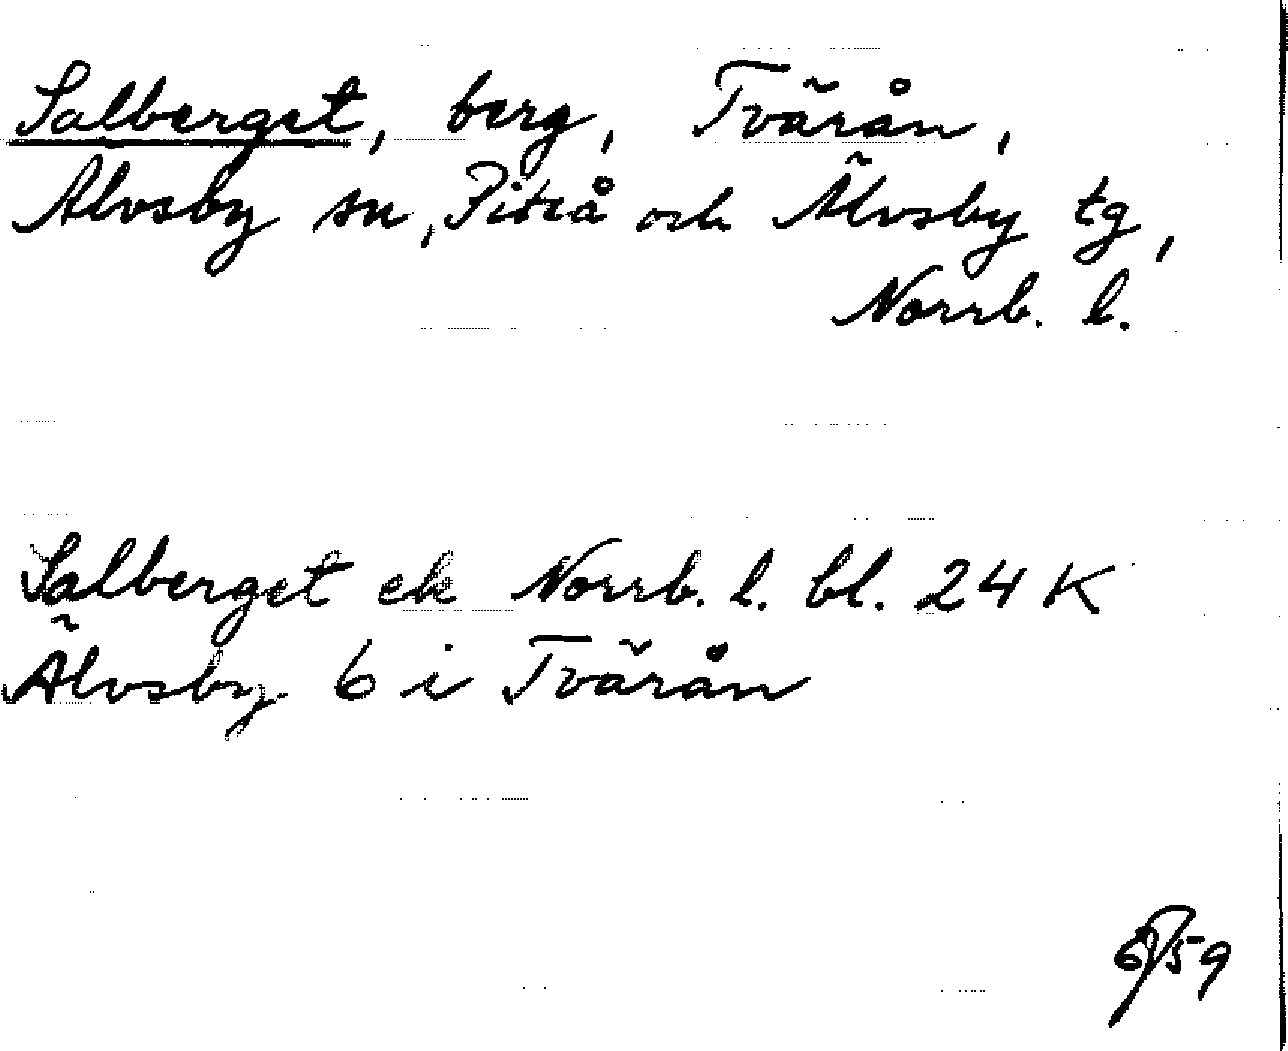 Salberget, berg, Tvärån,
Älvsby sn, Piteå och Älvsby tg,
Norrb. l.
Salberget ek Norrb. l. bl. 24 K
Älvsby 6 i Tvärån
59